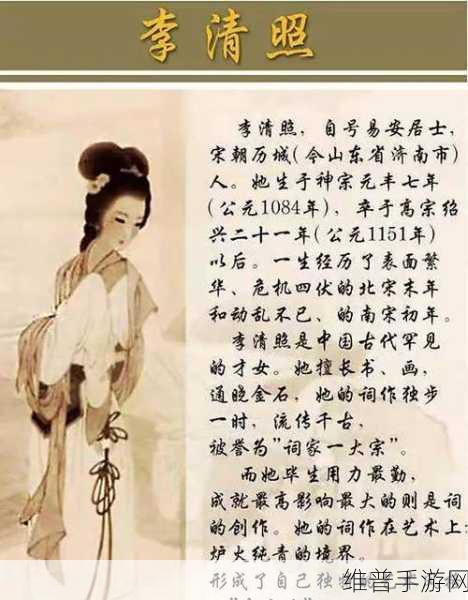 李清照
李清照，自号易安居士，
宋朝历城(今山东省济南市)
人。她生于神宗元丰七年
(公元1084年)，卒于高宗绍
兴二十一年(公元1151年)
以后。一生经历了表面繁
华、危机四伏的北宋末年
和动乱不已、的南宋初年。
李清照是中国古代罕见
的才女。她擅长书、画，
通晓金石，她的词作独步
一时，流传千古，
被誉为"词家一大宗"。
而她毕生用力最勤，
成就最高影响最大的则是词
的创作。她的词作在艺术上
炉火纯青的境界。
形成了自己独
维普手游网